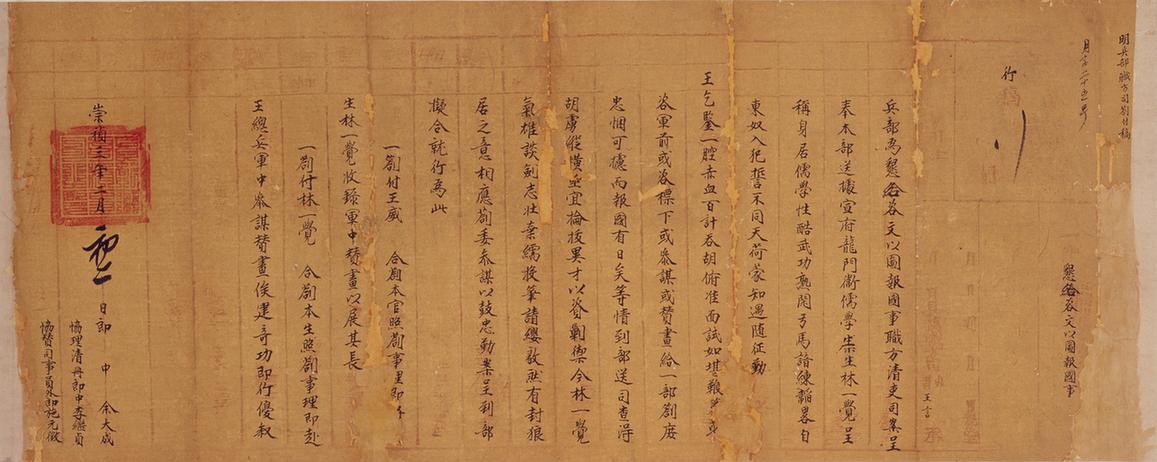 明兵部職方司劄付稿
懇給咨文以圖報國事
行
稿
兵部為懇給咨文以圖報國事職方清吏司案呈
奉本部送據宣府龍門衛儒學廩生林一覺呈
稱身居儒學性酷武功熟閑弓馬諳練韜畧自
東奴入犯誓不同天荷蒙知遇隨征勦
王乞鑒一腔赤血百計吞胡俯准面試如堪艱
咨軍前或咨標下或叅謀或贊畫給一部劄庶
忠悃可攄而報國有日矣等情到部送司查得
胡虜縱橫亟宜掄拔異才以資剿禦今林一覺
氣雄談劍志壯棄繻投筆請纓毅然有封狼
居之意相應劄委叅謀以鼓忠勤案呈到部
擬合就行為此
一劄付王威 合劄本官照劄事理即
生林一覺收錄軍中贊畫以展其長
一劄付林一覺 合劄本生照劄事理即赴
王總兵軍中叅謀贊畫俟建奇功即行優叙
崇禎三年二月 初二 日郎 中 余大成
協理清冊郎中李繼貞
協贊司事員外郎施元徵